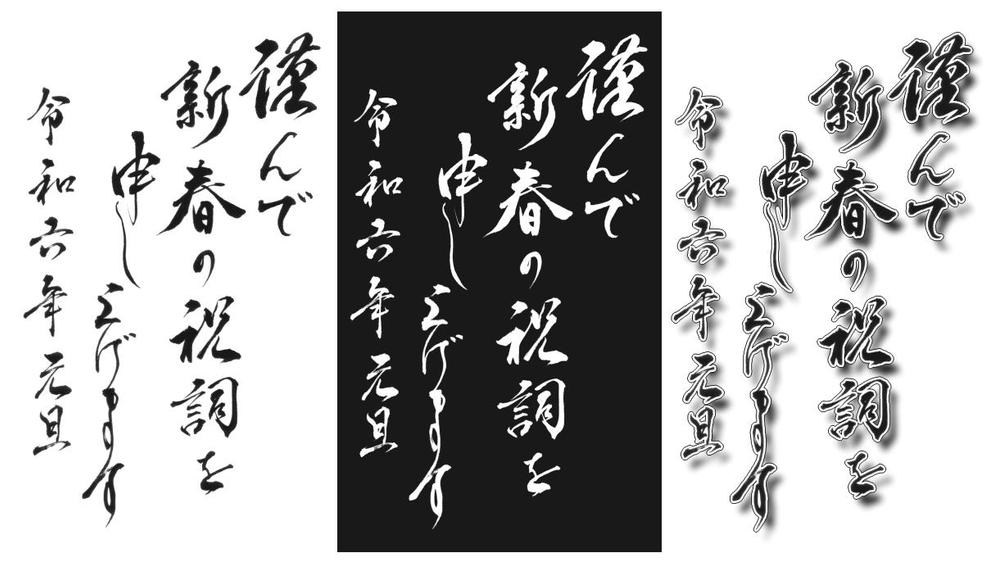 謹んで
新春の祝詞を
申し上げます
令和六年元旦
謹んで
新春の祝詞を
申し上げます
令和六年元旦
謹んで
新春の祝詞を
申し上げます
令和六年元旦